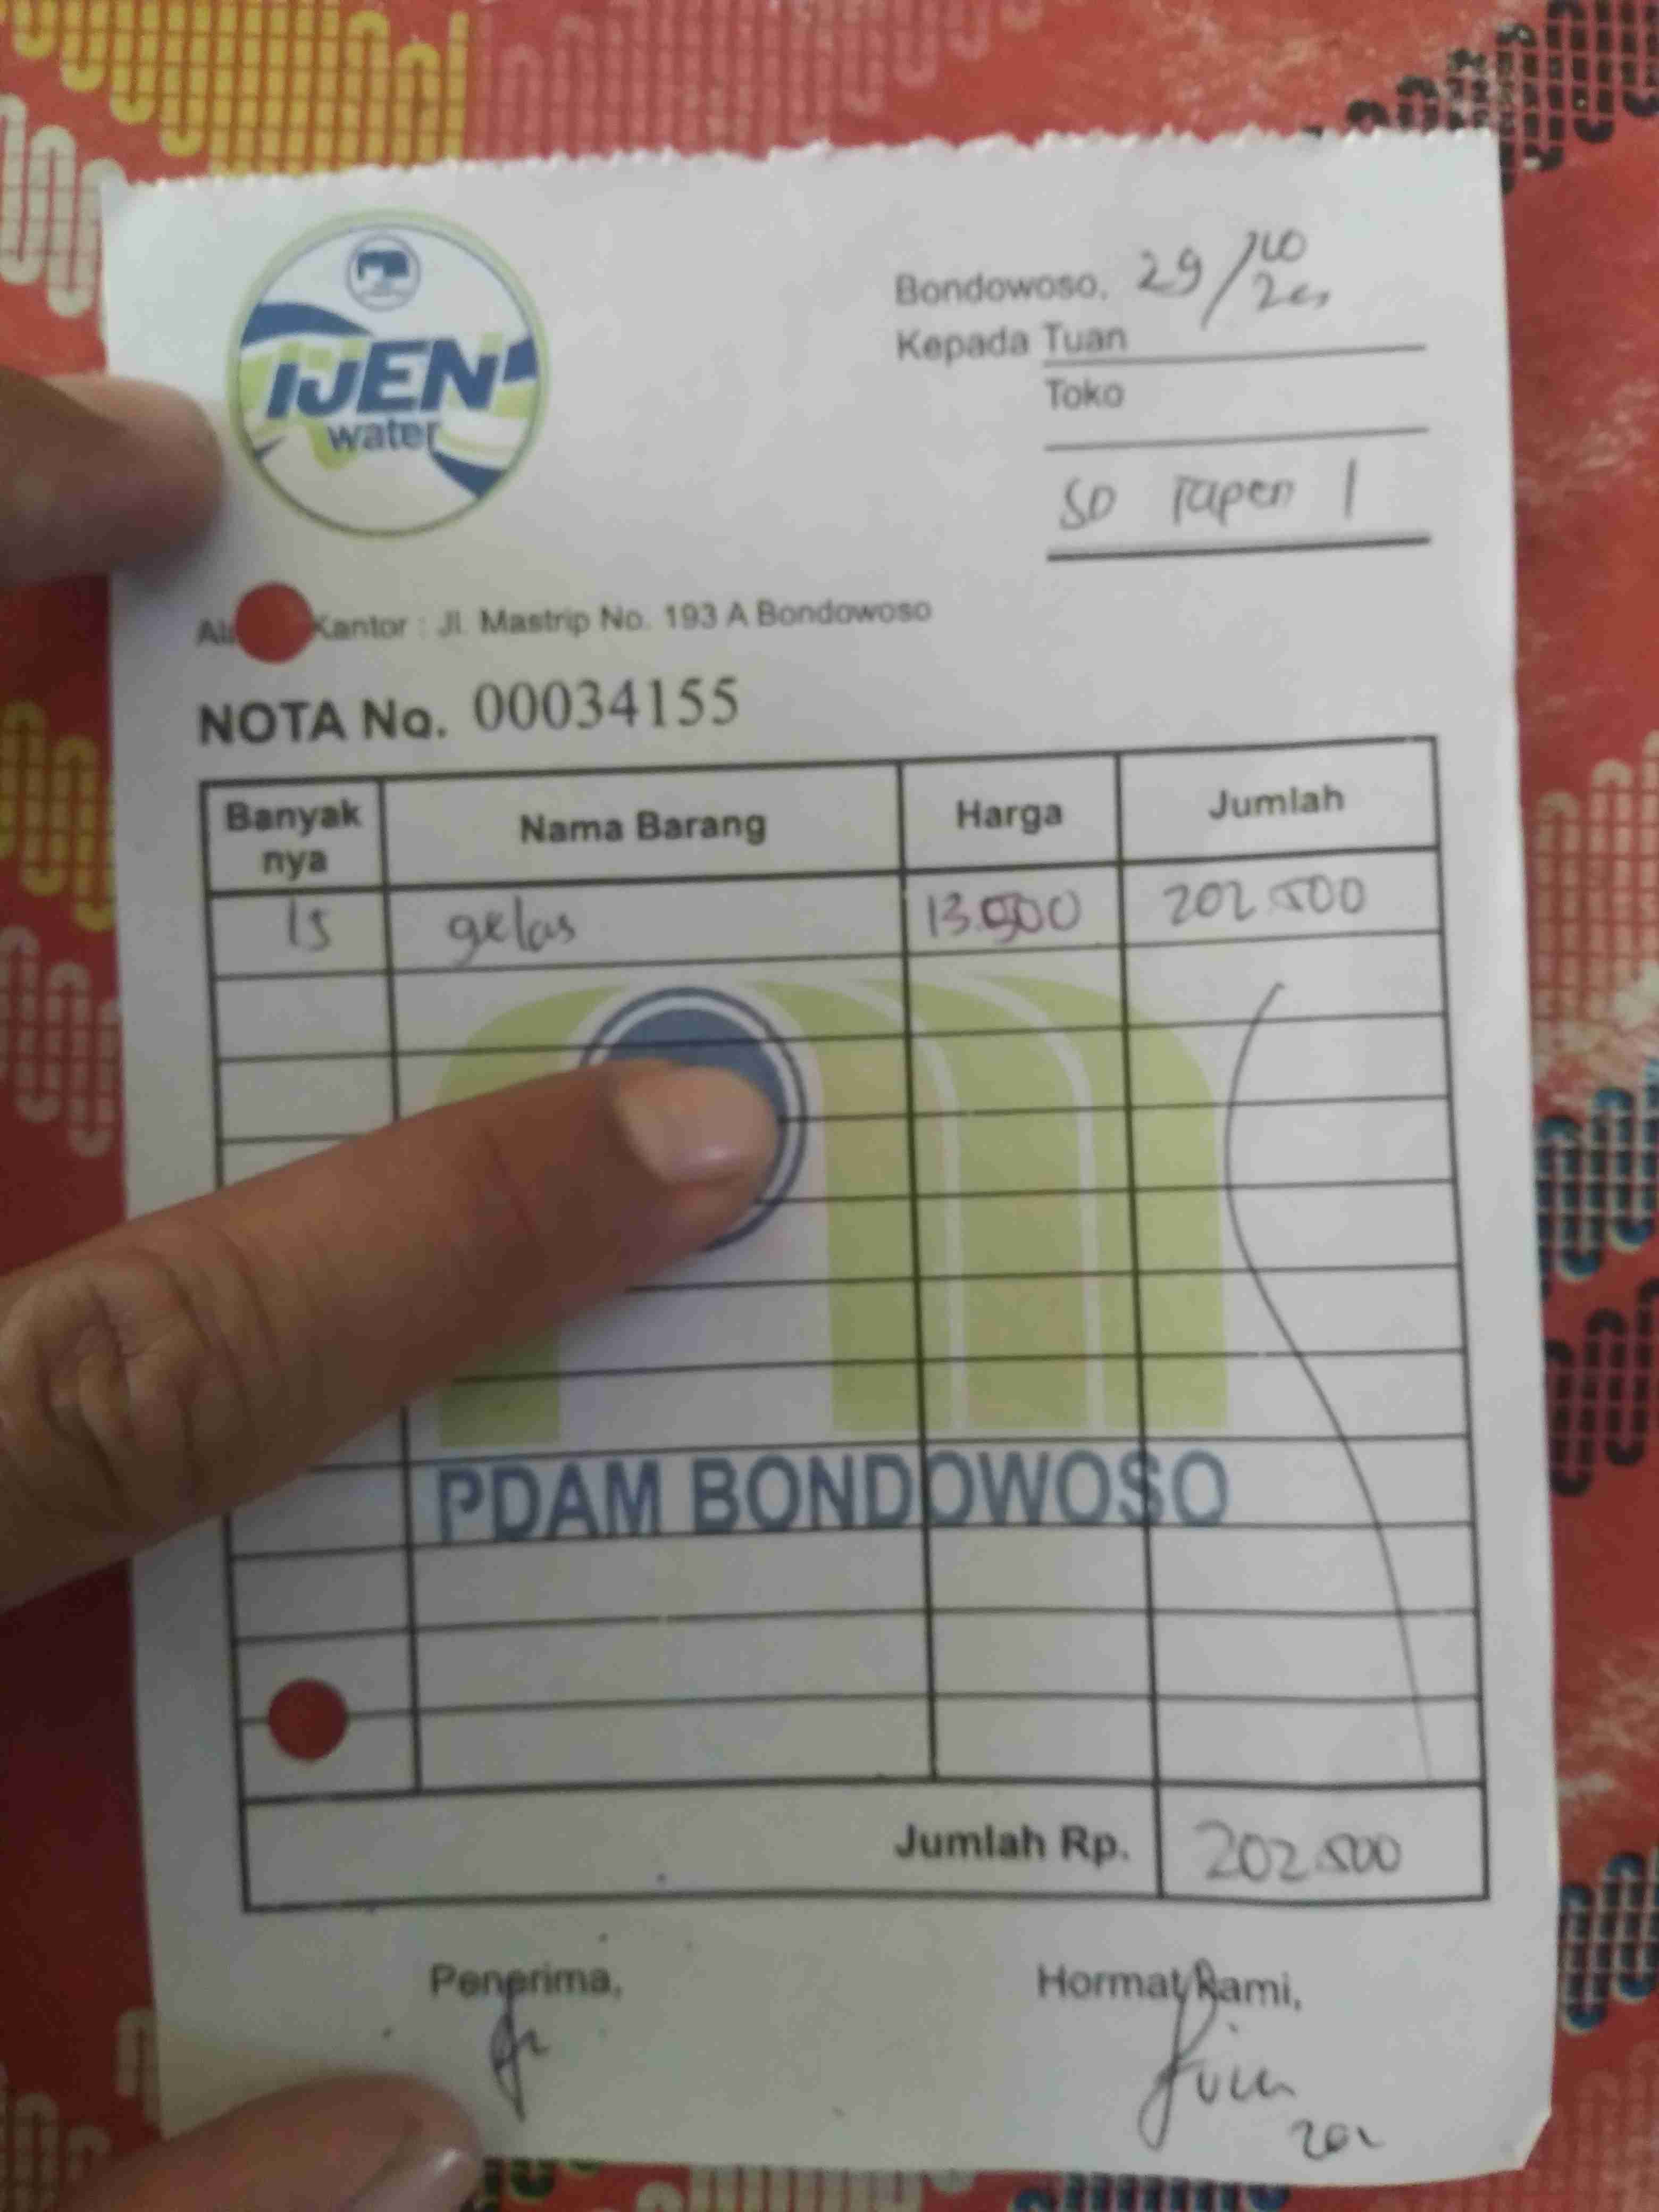 IJEN
water
Bondowoso, 29/
Kepada Tuan
Toko
SD Tapen 1
Kantor : Jl. Mastrip No. 193 A Bondowoso
NOTA No. 00034155
Banyak nya Nama Barang Harga Jumlah
15 gelas 13.500 202.500
PDAM BONDOWOSO
Jumlah Rp. 202.500
Penerima, Hormat Kami,